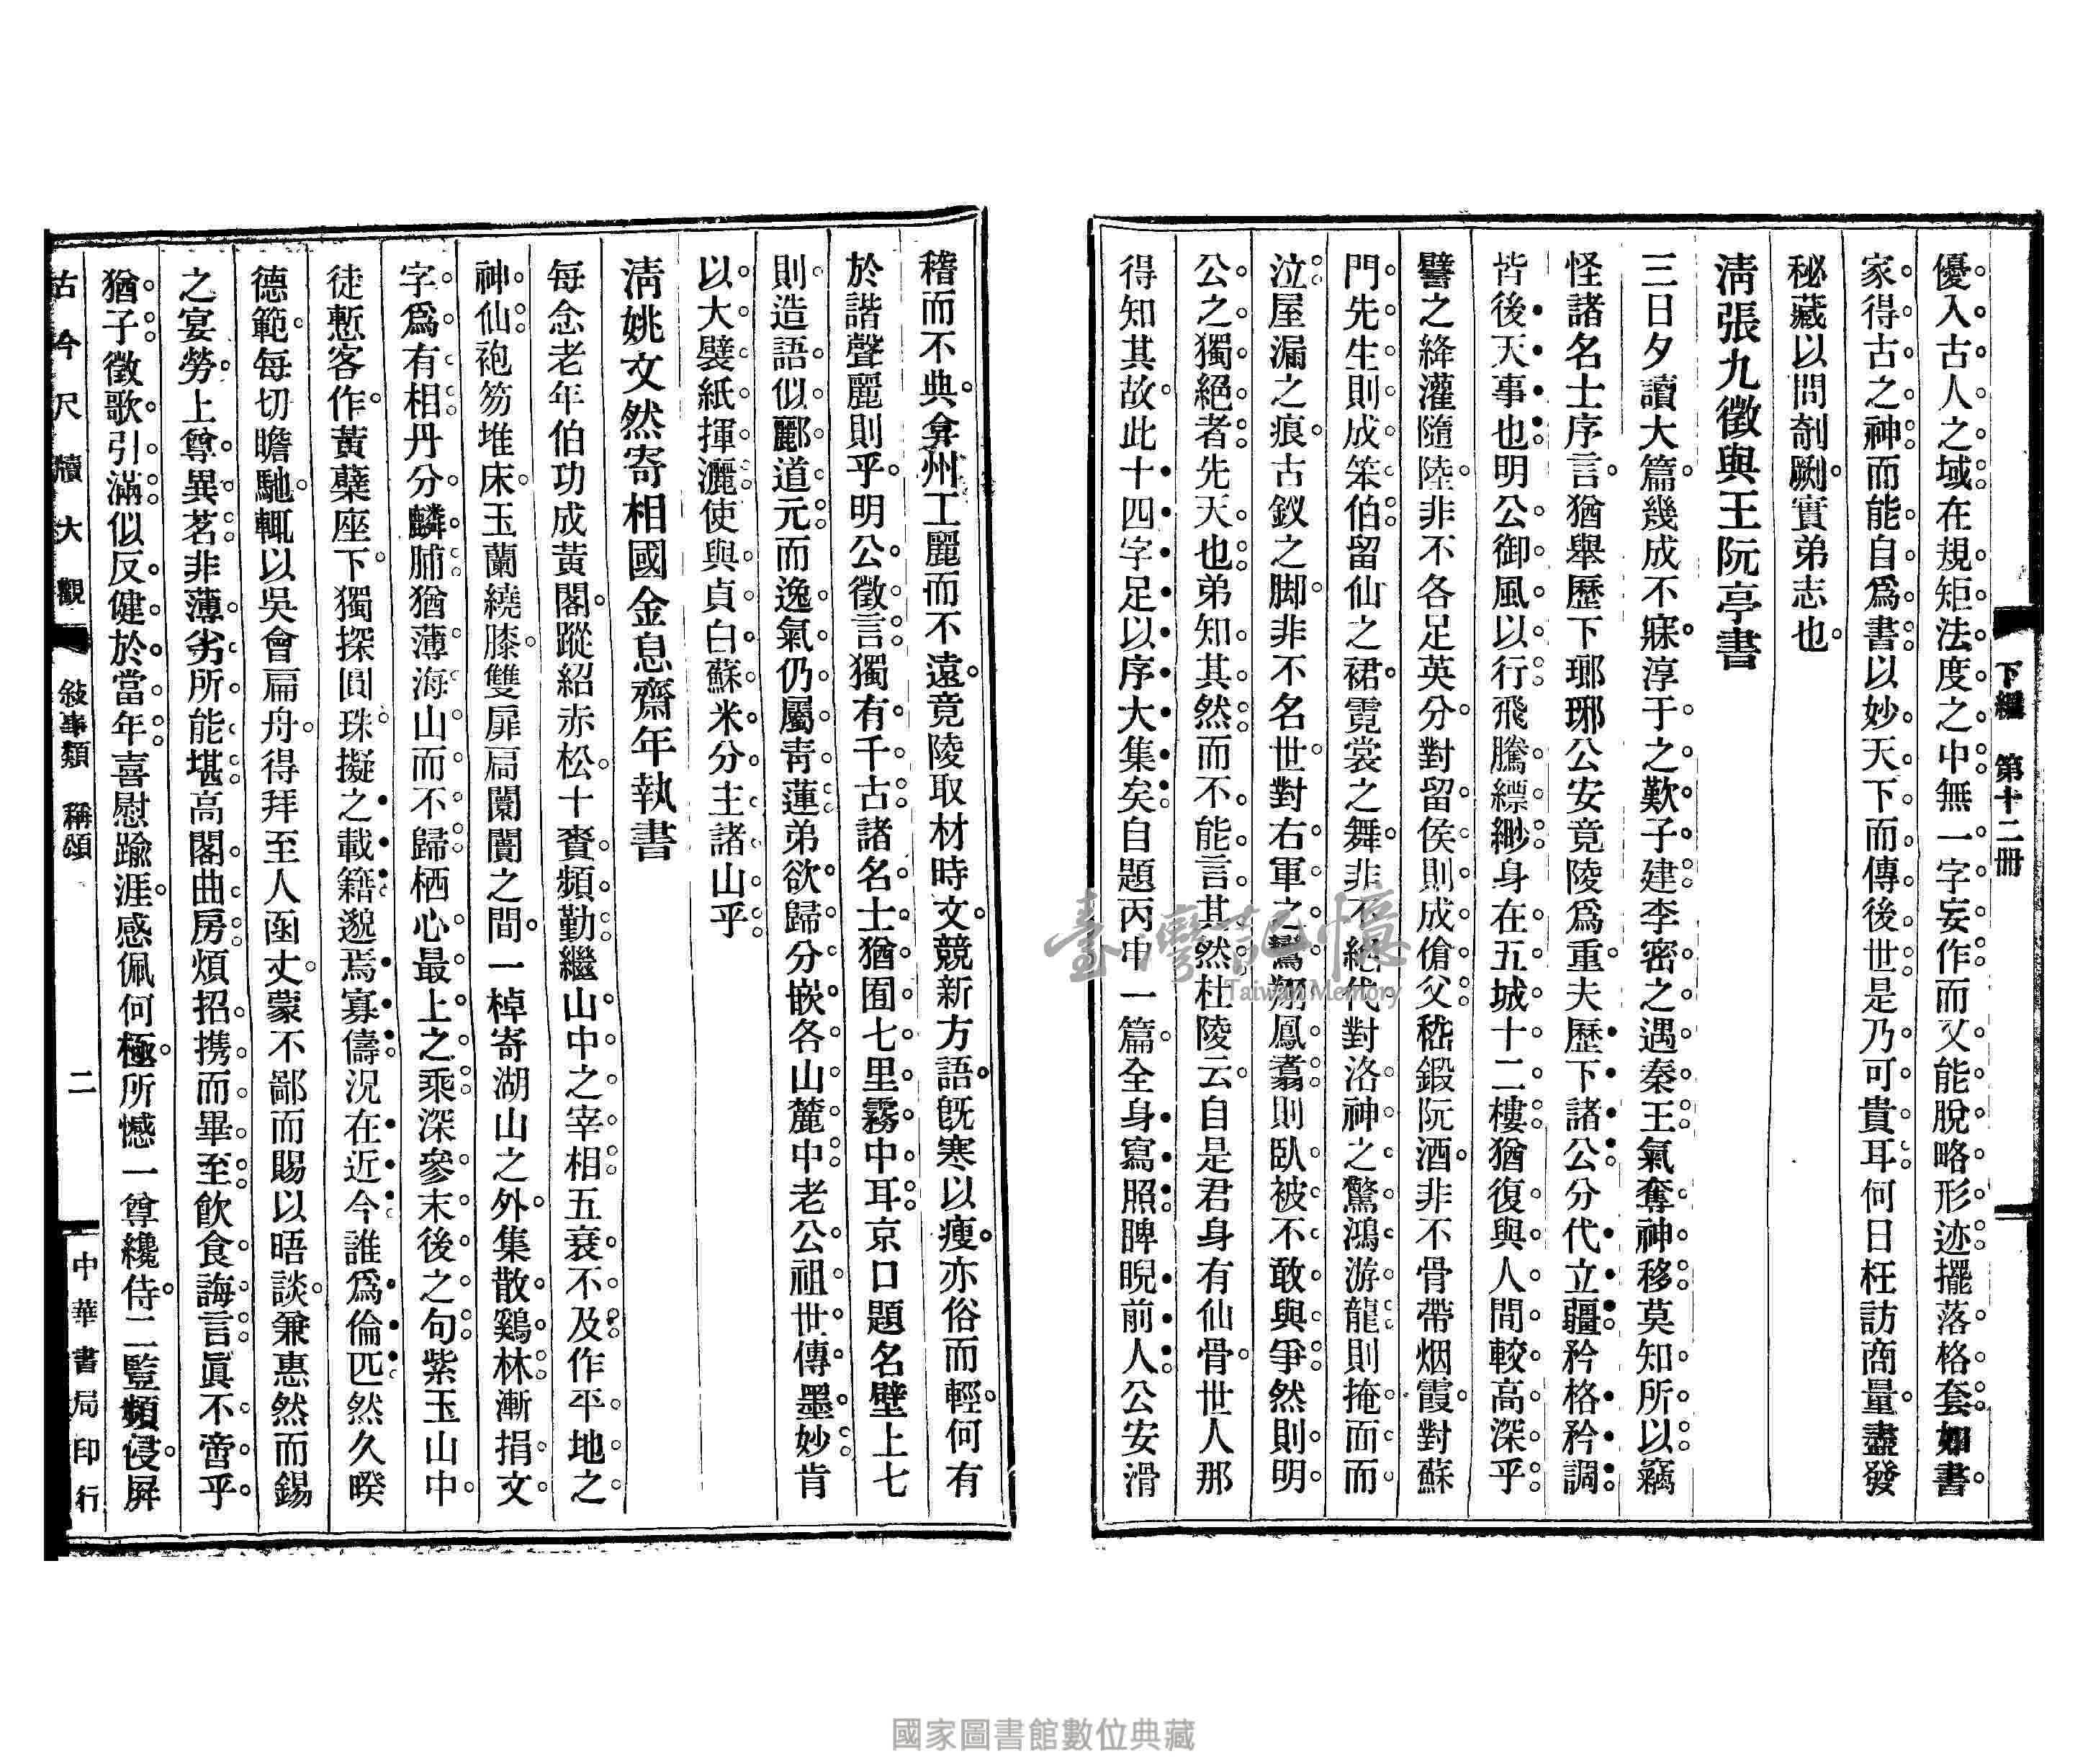 下編　第十二冊
優入古人之域在規矩法度之中無一字妄作而又能脫略形迹擺落格套如書
家得古之神而能自爲書以妙天下而傳後世是乃可貴耳何日枉訪商量盡發
秘藏以問剞劂實弟志也
淸張九徵與王阮亭書
三日夕讀大篇幾成不寐淳于之歎子建李密之遇秦王氣奪神移莫知所以竊
怪諸名士序言猶舉歷下瑯琊公安竟陵爲重夫歷下諸公分代立疆矜格矜調
皆後天事也明公御風以行飛騰縹緲身在五城十二樓猶復與人間較高深乎
譬之絳灌隨陸非不各足英分對留侯則成傖父嵇鍛阮酒非不骨帶烟霞對蘇
門先生則成笨伯留仙之裙霓裳之舞非不絕代對洛神之驚鴻游龍則掩而而
泣屋漏之痕古釵之脚非不名世對右軍之鸞翔鳳翥則臥被不敢與爭然則明
公之獨絕者先天也弟知其然而不能言其然杜陵云自是君身有仙骨世人那
得知其故此十四字足以序大集矣自題丙申一篇全身寫照睥睨前人公安滑
稽而不典弇州工麗而不遠竟陵取材時文競新方語旣寒以瘦亦俗而輕何有
於諧聲麗則乎明公徵言獨有千古諸名士猶囿七里霧中耳京口題名壁上七
則造語似酈道元而逸氣仍屬靑蓮弟欲歸分嵌各山麓中老公祖世傳墨妙肯
以大襞紙揮灑使與貞白蘇米分主諸山乎
淸姚文然寄相國金息齋年執書
每念老年伯功成黃閣蹤紹赤松十賚頻勤繼山中之宰相五衰不及作平地之
神仙袍笏堆床玉蘭繞膝雙扉扃闤闠之間一棹寄湖山之外集散鷄林漸捐文
字爲有相丹分麟脯猶薄海山而不歸栖心最上之乘深參末後之句紫玉山中
徒慙客作黃蘗座下獨探圓珠擬之載籍邈焉寡儔況在近今誰爲倫匹然久暌
德範每切瞻馳輒以吳會扁舟得拜至人函丈蒙不鄙而賜以晤談兼惠然而錫
之宴勞上尊異茗非薄劣所能堪高閣曲房煩招携而畢至飲食誨言眞不啻乎
猶子徵歌引滿似反健於當年喜慰踰涯感佩何極所憾一尊纔侍二豎頻侵屛
古今尺牘大觀　敍事類　稱頌　二　中華書局印行
臺灣記憶
Taiwan Memory
國家圖書館數位典藏